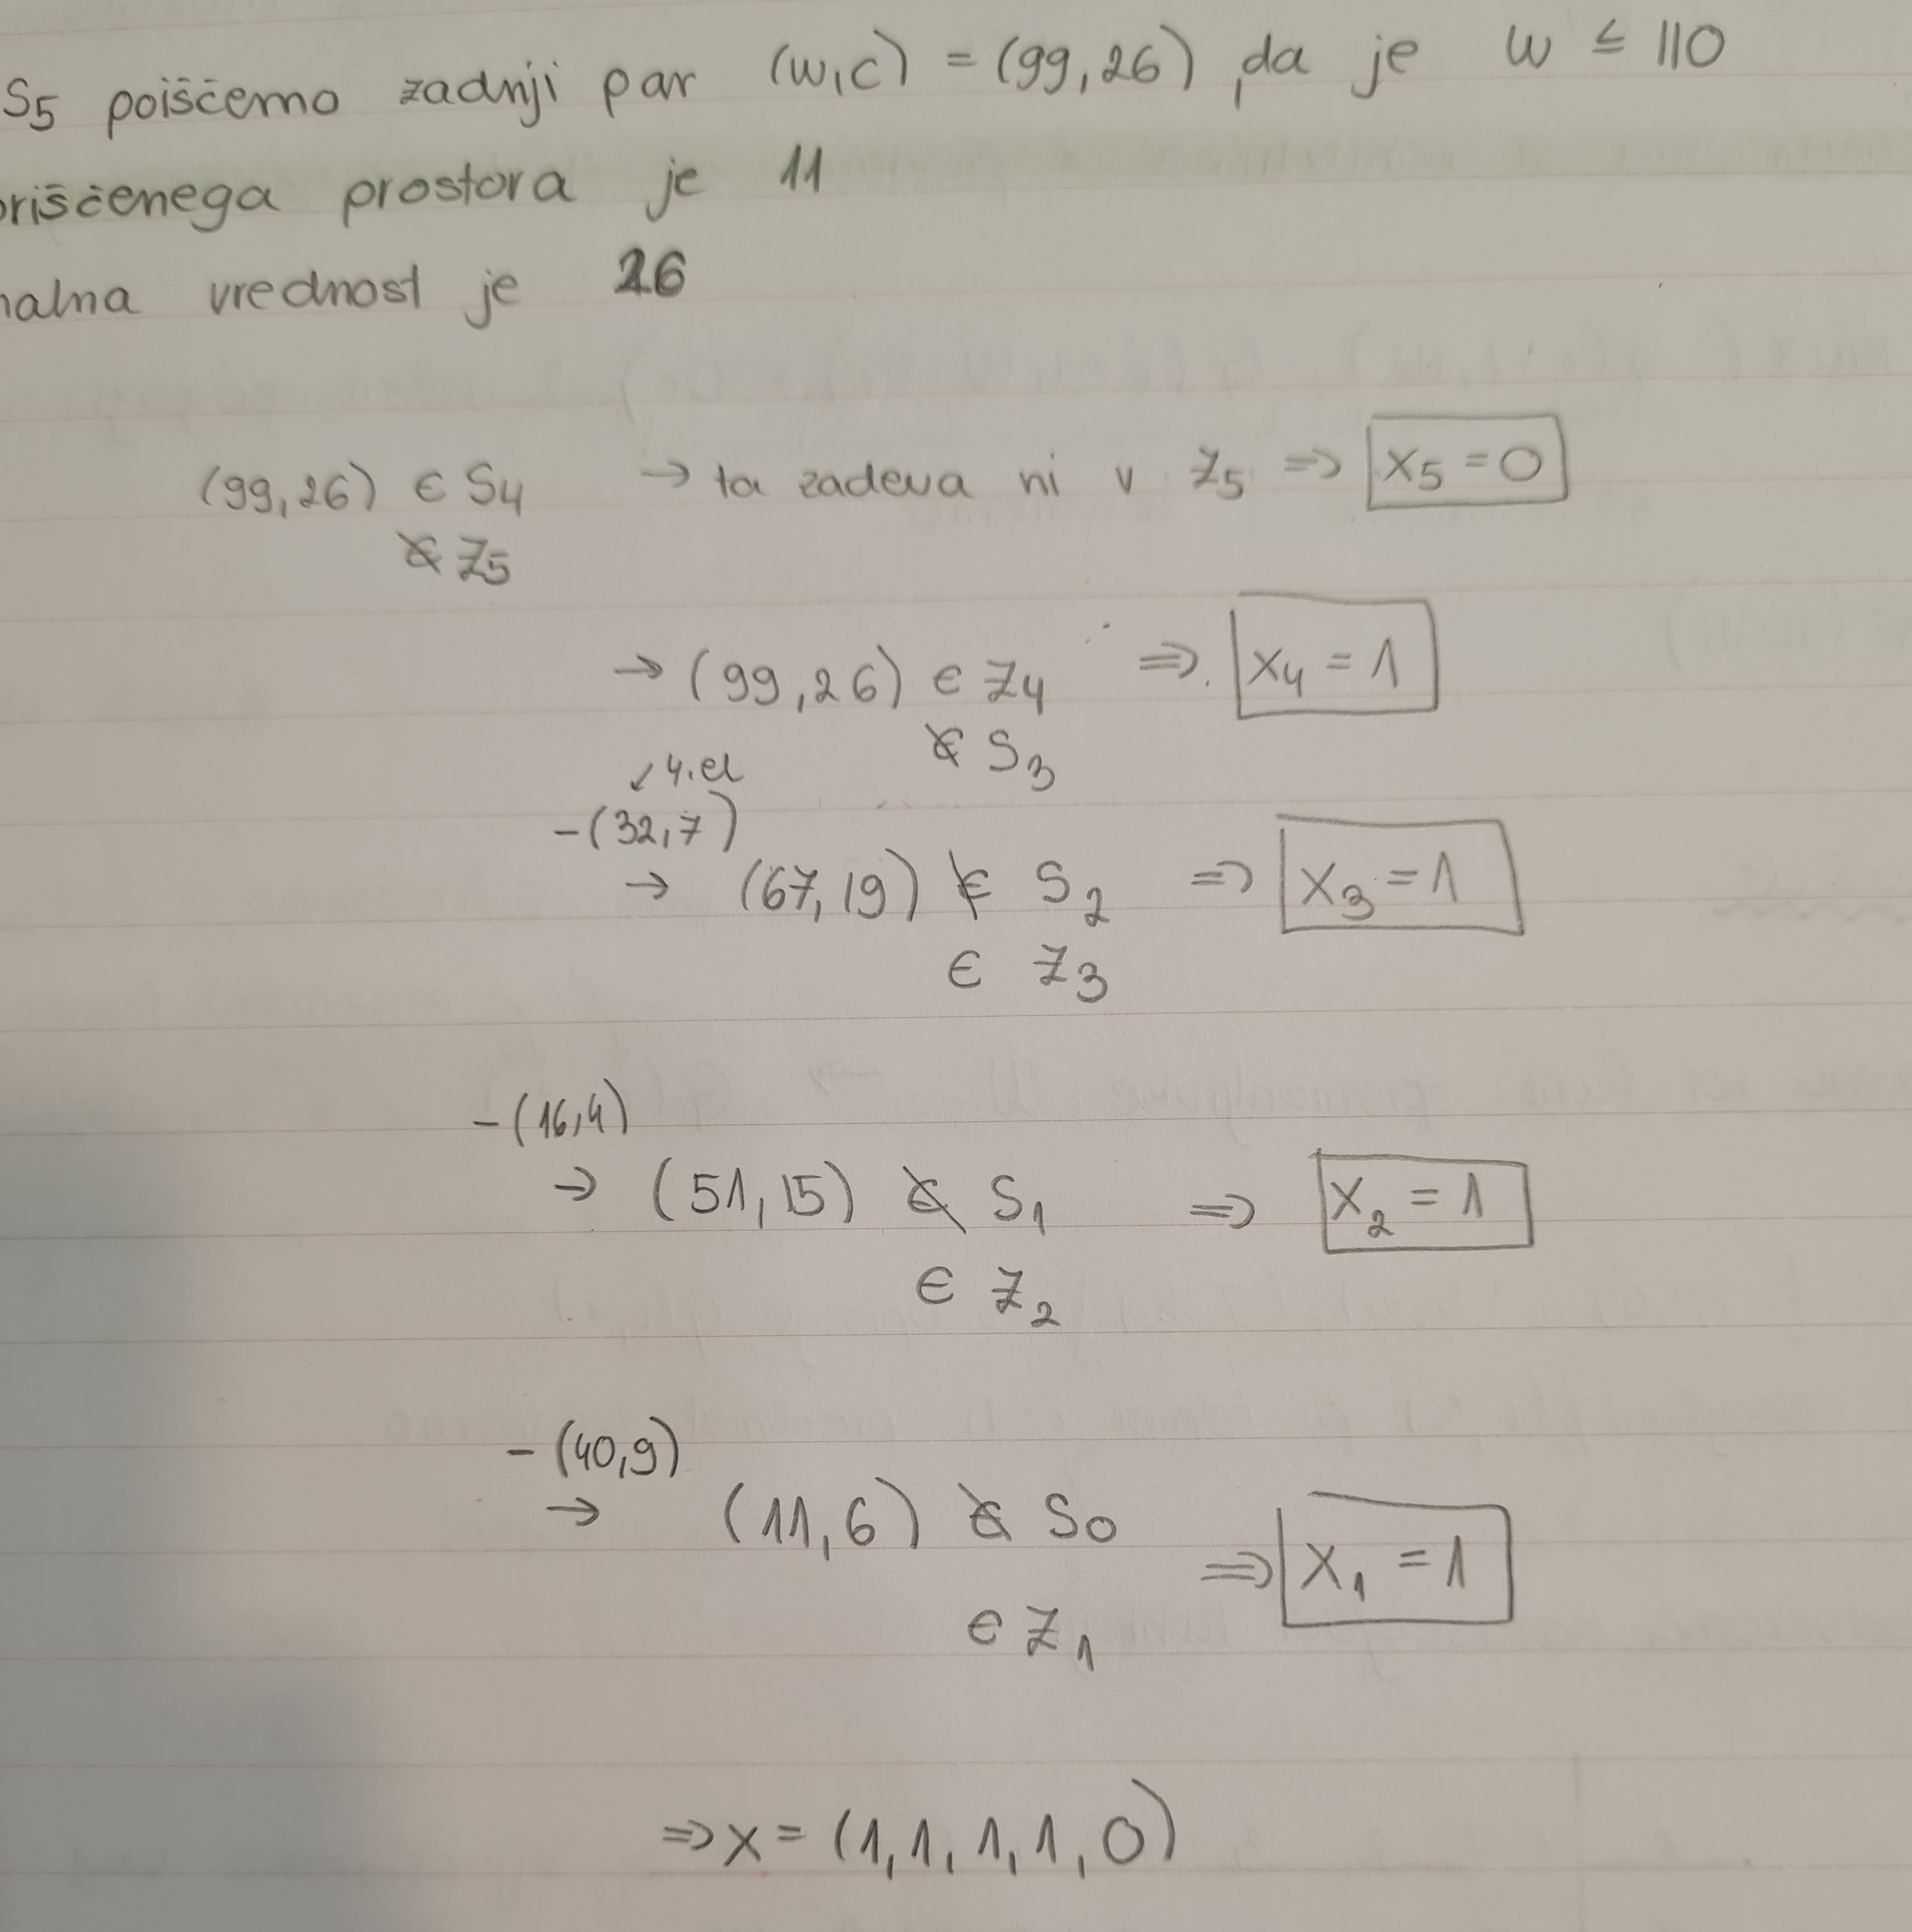 S5 poiščemo zadnji par (w,c) = (99,26), da je w ≤ 110
oriščenega prostora je 11
nalna vrednost je 26
(99,26) ∈ S4 → ta zadeva ni v Z5 ⇒ x5 = 0
∉ Z5
→ (99,26) ∈ Z4 ⇒ x4 = 1
∉ S3
↙ 4. el
-(32,7)
→ (67,19) ∉ S2 ⇒ x3 = 1
∈ Z3
-(16,4)
→ (51,15) ∉ S1 ⇒ x2 = 1
∈ Z2
-(40,9)
→ (11,6) ∉ S0
⇒ x1 = 1
∈ Z1
⇒ x = (1,1,1,1,0)